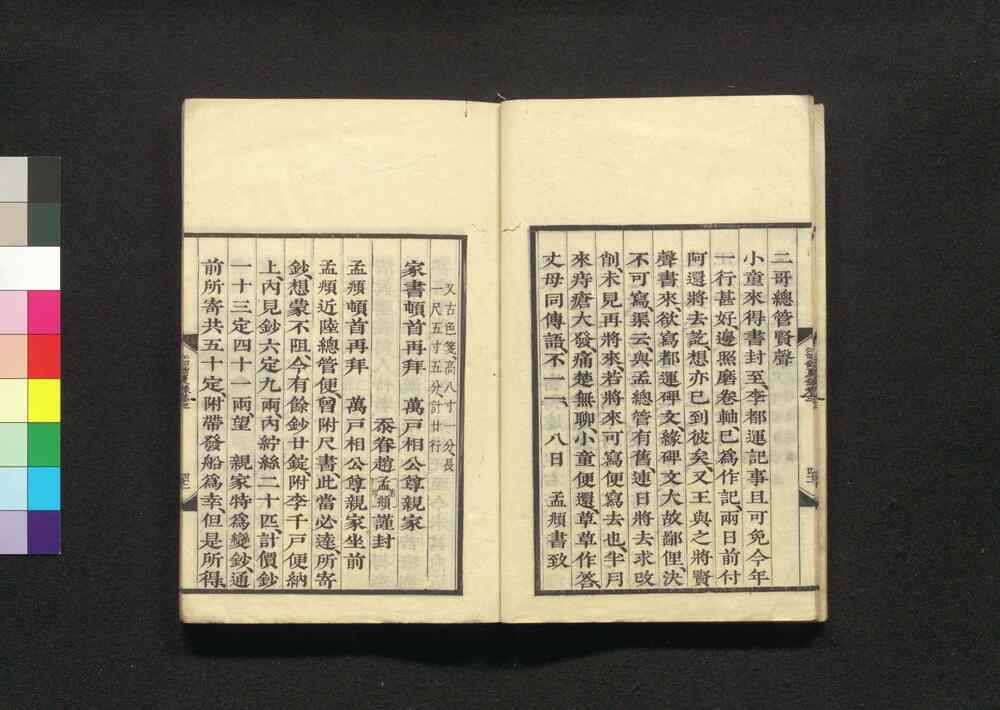 二哥總管賢聲
小童來得書封至、李都運記事且可免今年
一行甚好、邊照磨卷軸、已爲作記、兩日前付
阿還將去訖、想亦已到彼矣、又王與之將賢
聲書來、欲寫都運碑文、緣碑文大故鄙俚、決
不可寫、渠云與孟總管有舊、連日將去求改
削、未見再將來、若將來可寫便寫去也、半月
來痔瘡大發、痛楚無聊、小童便還、草草作答、
丈母同傳語、不一一、 八日 孟頫書致
又古色箋、高八寸一分、長
一尺五寸五分、計廿行
家書頓首再拜 萬戶相公尊親家
忝眷趙孟頫謹封
孟頫頓首再拜 萬戶相公尊親家坐前
孟頫近陸總管便、曾附尺書、此當必達、所寄
鈔、想蒙不阻、今有餘鈔廿錠附李千戶便納
上、內見鈔六定九兩、內紵絲二十匹、計價鈔
一十三定四十一兩、望 親家特爲變鈔、通
前所寄共五十定、附帶發船爲幸、但是所得、